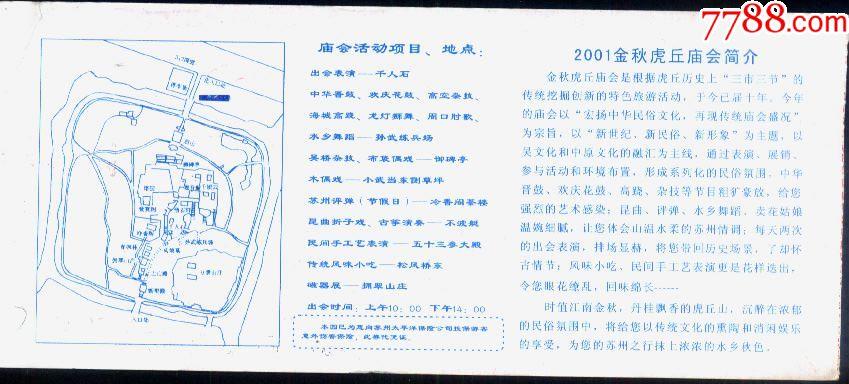 7788.com
庙会活动项目、地点：
出会表演——千人石
中华晋鼓、欢庆花鼓、高空杂技、
海城高跷、龙灯狮舞、周口肘歌、
水乡舞蹈——孙武练兵场
吴桥杂技、布袋偶戏——御碑亭
木偶戏——小武当家侧草坪
苏州评弹（节假日）——冷香阁茶楼
昆曲折子戏、古筝演奏——不波艇
民间手工艺表演——五十三参大殿
传统风味小吃——松风桥东
磁器展——拥翠山庄
出会时间：上午10：00 下午14：00
本园已为您向苏州太平洋保险公司投保游客
意外伤害保险，此券代凭证。
2001金秋虎丘庙会简介
金秋虎丘庙会是根据虎丘历史上“三市三节”的
传统挖掘创新的特色旅游活动，于今已届十年。今年
的庙会以“宏扬中华民俗文化，再现传统庙会盛况”
为宗旨，以“新世纪、新民俗、新形象”为主题，以
吴文化和中原文化的融汇为主线，通过表演、展销、
参与活动和环境布置，形成系列化的民俗氛围。中华
晋鼓、欢庆花鼓、高跷、杂技等节目粗犷豪放，给您
强烈的艺术感染；昆曲、评弹、水乡舞蹈、卖花姑娘
温婉细腻，让您体会山温水柔的苏州情调；每天两次
的出会表演，排场显赫，将您带回历史场景，了却怀
古情节；风味小吃、民间手工艺表演更是花样迭出，
令您眼花缭乱，回味绵长------
时值江南金秋，丹桂飘香的虎丘山，沉醉在浓郁
的民俗氛围中，将给您以传统文化的熏陶和消闲娱乐
的享受，为您的苏州之行抹上浓浓的水乡秋色。